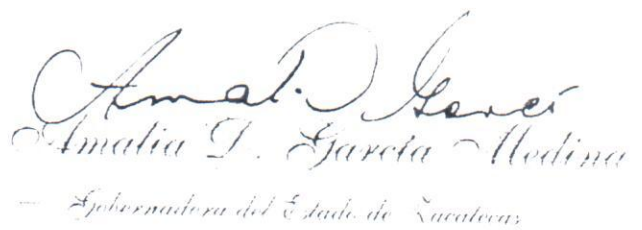 Amal. D Garcí
Amalia D. García Medina
Gobernadora del Estado de Zacatecas